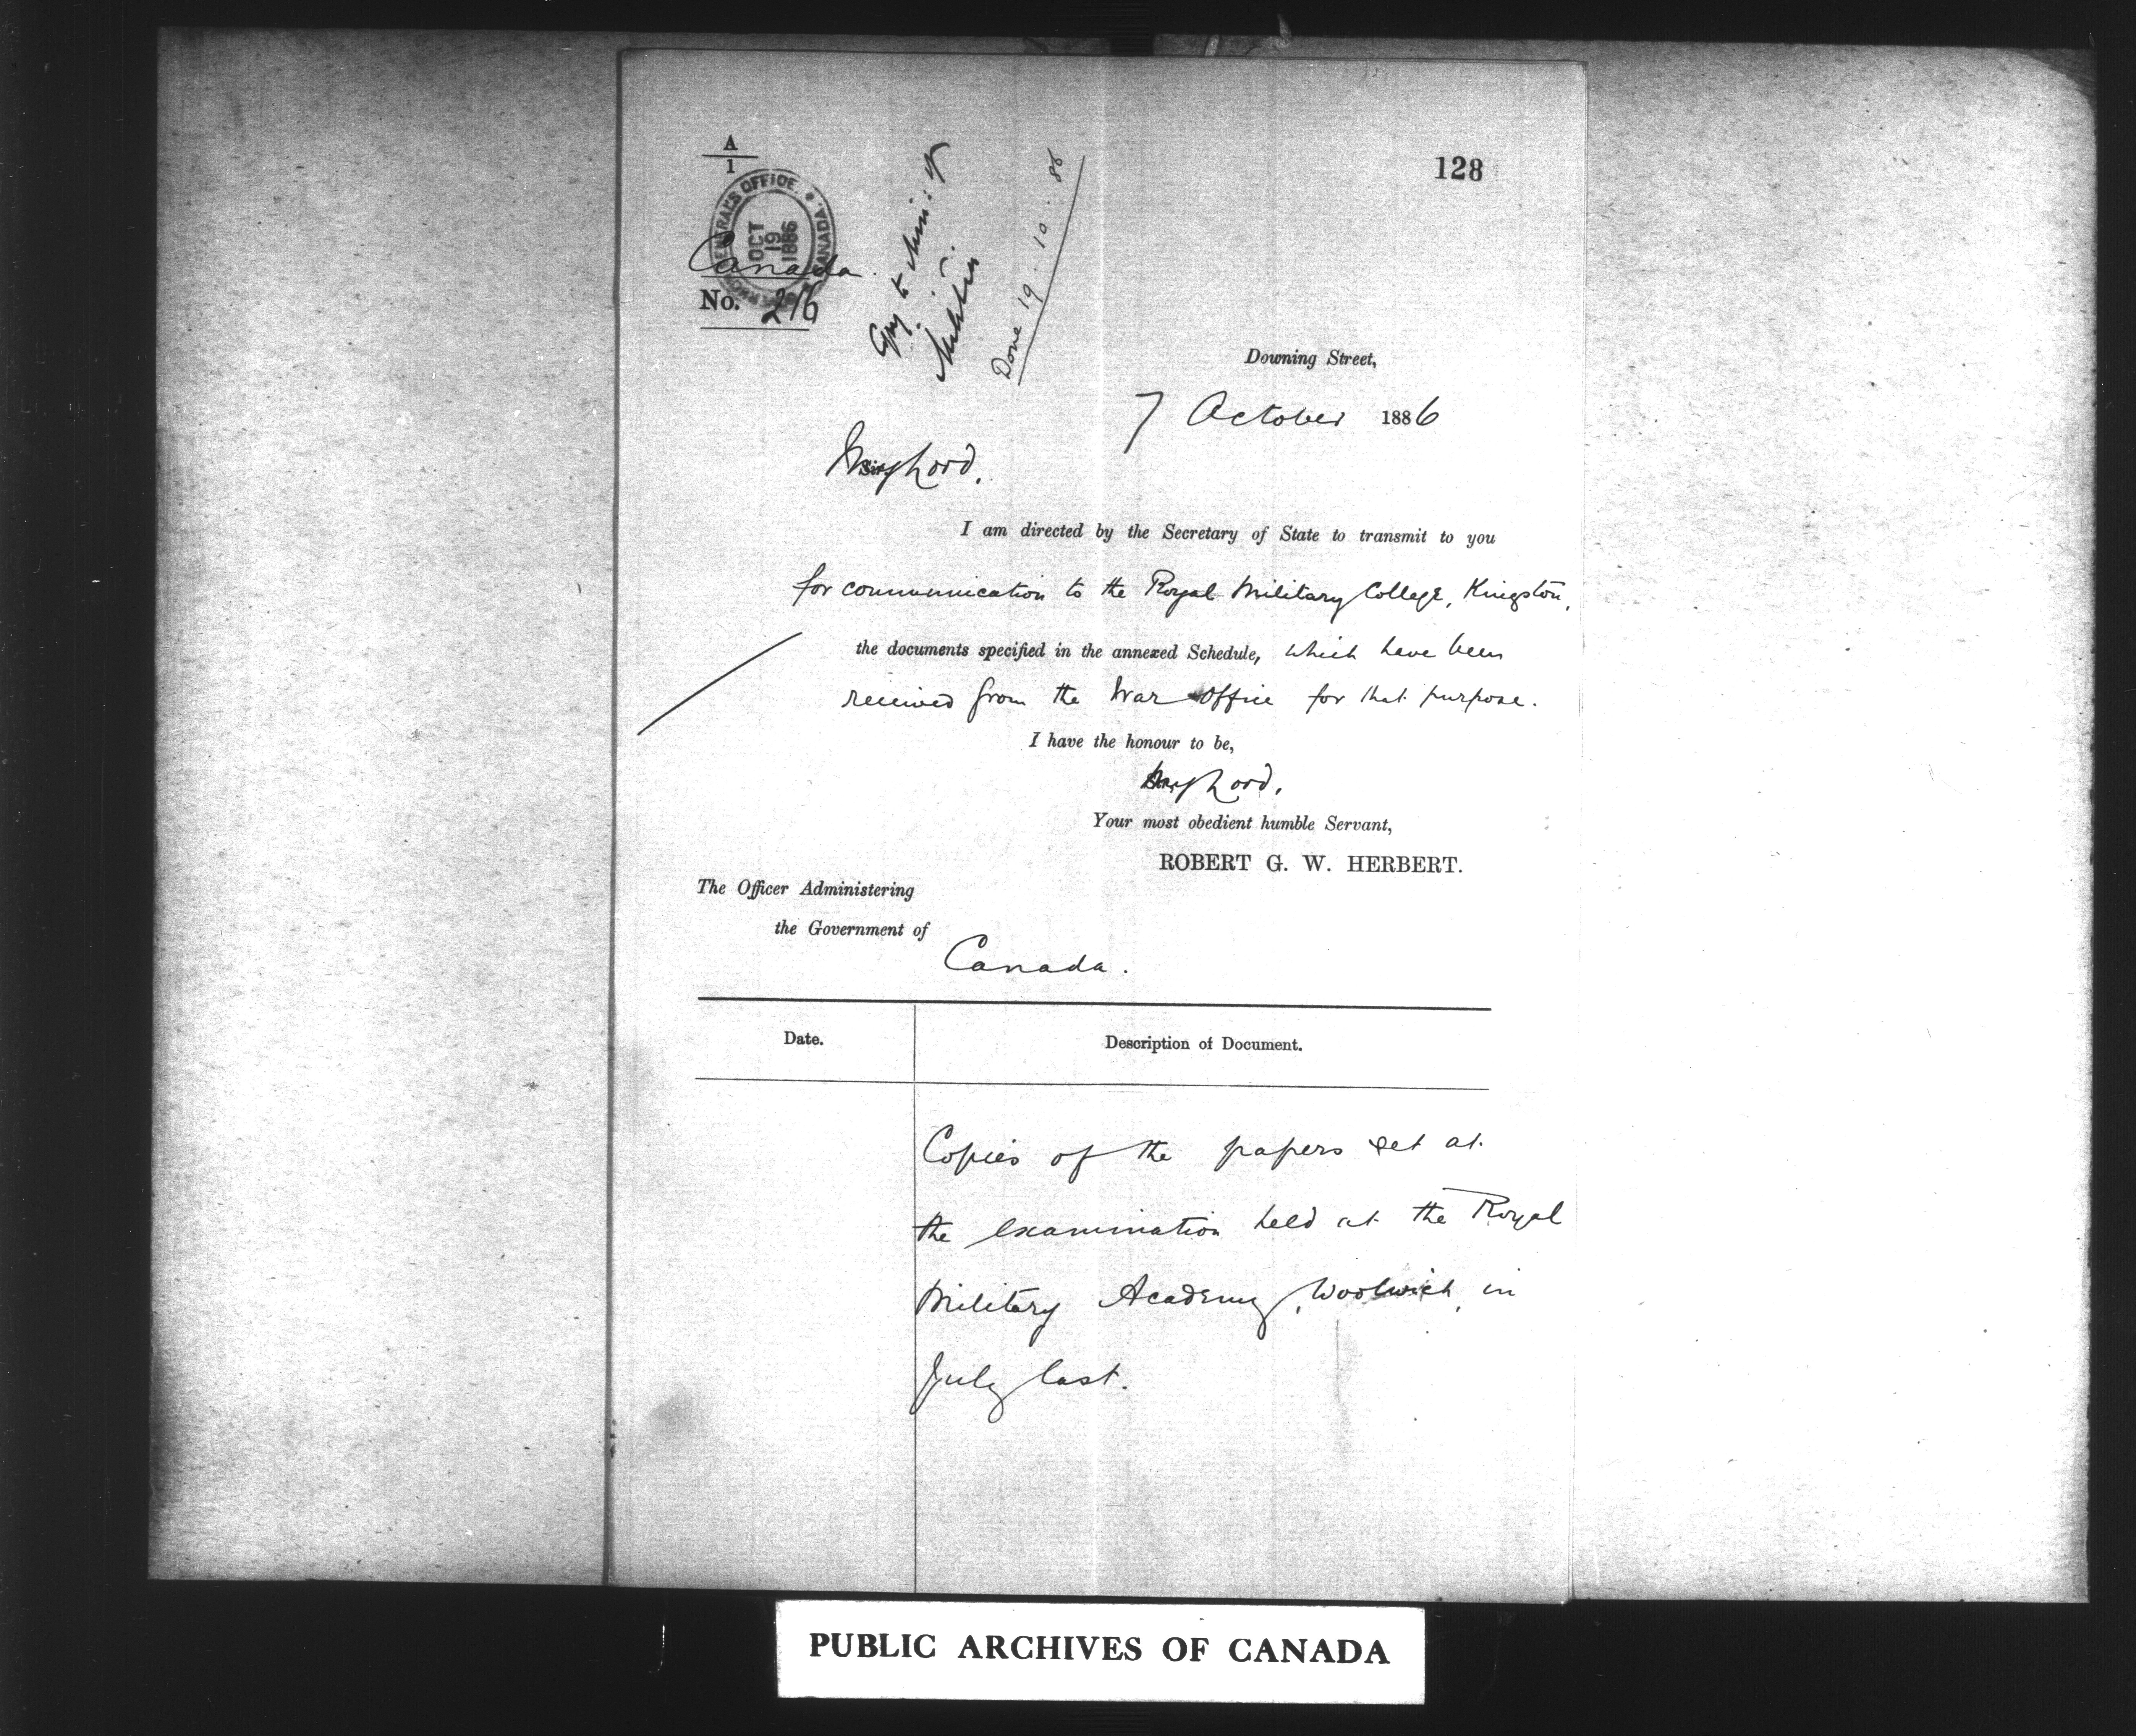 A
1
128
GOVERNOR GENERAL'S OFFICE. CANADA.
OCT
19
1886
Canada.
No. 216
Copy to Min: of
Militia
Done 19. 10. 86
Downing Street,
7 October 1886
My Lord,
I am directed by the Secretary of State to transmit to you
for communication to the Royal Military College, Kingston,
the documents specified in the annexed Schedule, which have been
received from the War Office for that purpose.
I have the honour to be,
My Lord,
Your most obedient humble Servant,
ROBERT G. W. HERBERT.
The Officer Administering
the Government of
Canada.
Date.
Description of Document.
Copies of the papers set at
the examination held at the Royal
Military Academy, Woolwich, in
July last.
PUBLIC ARCHIVES OF CANADA